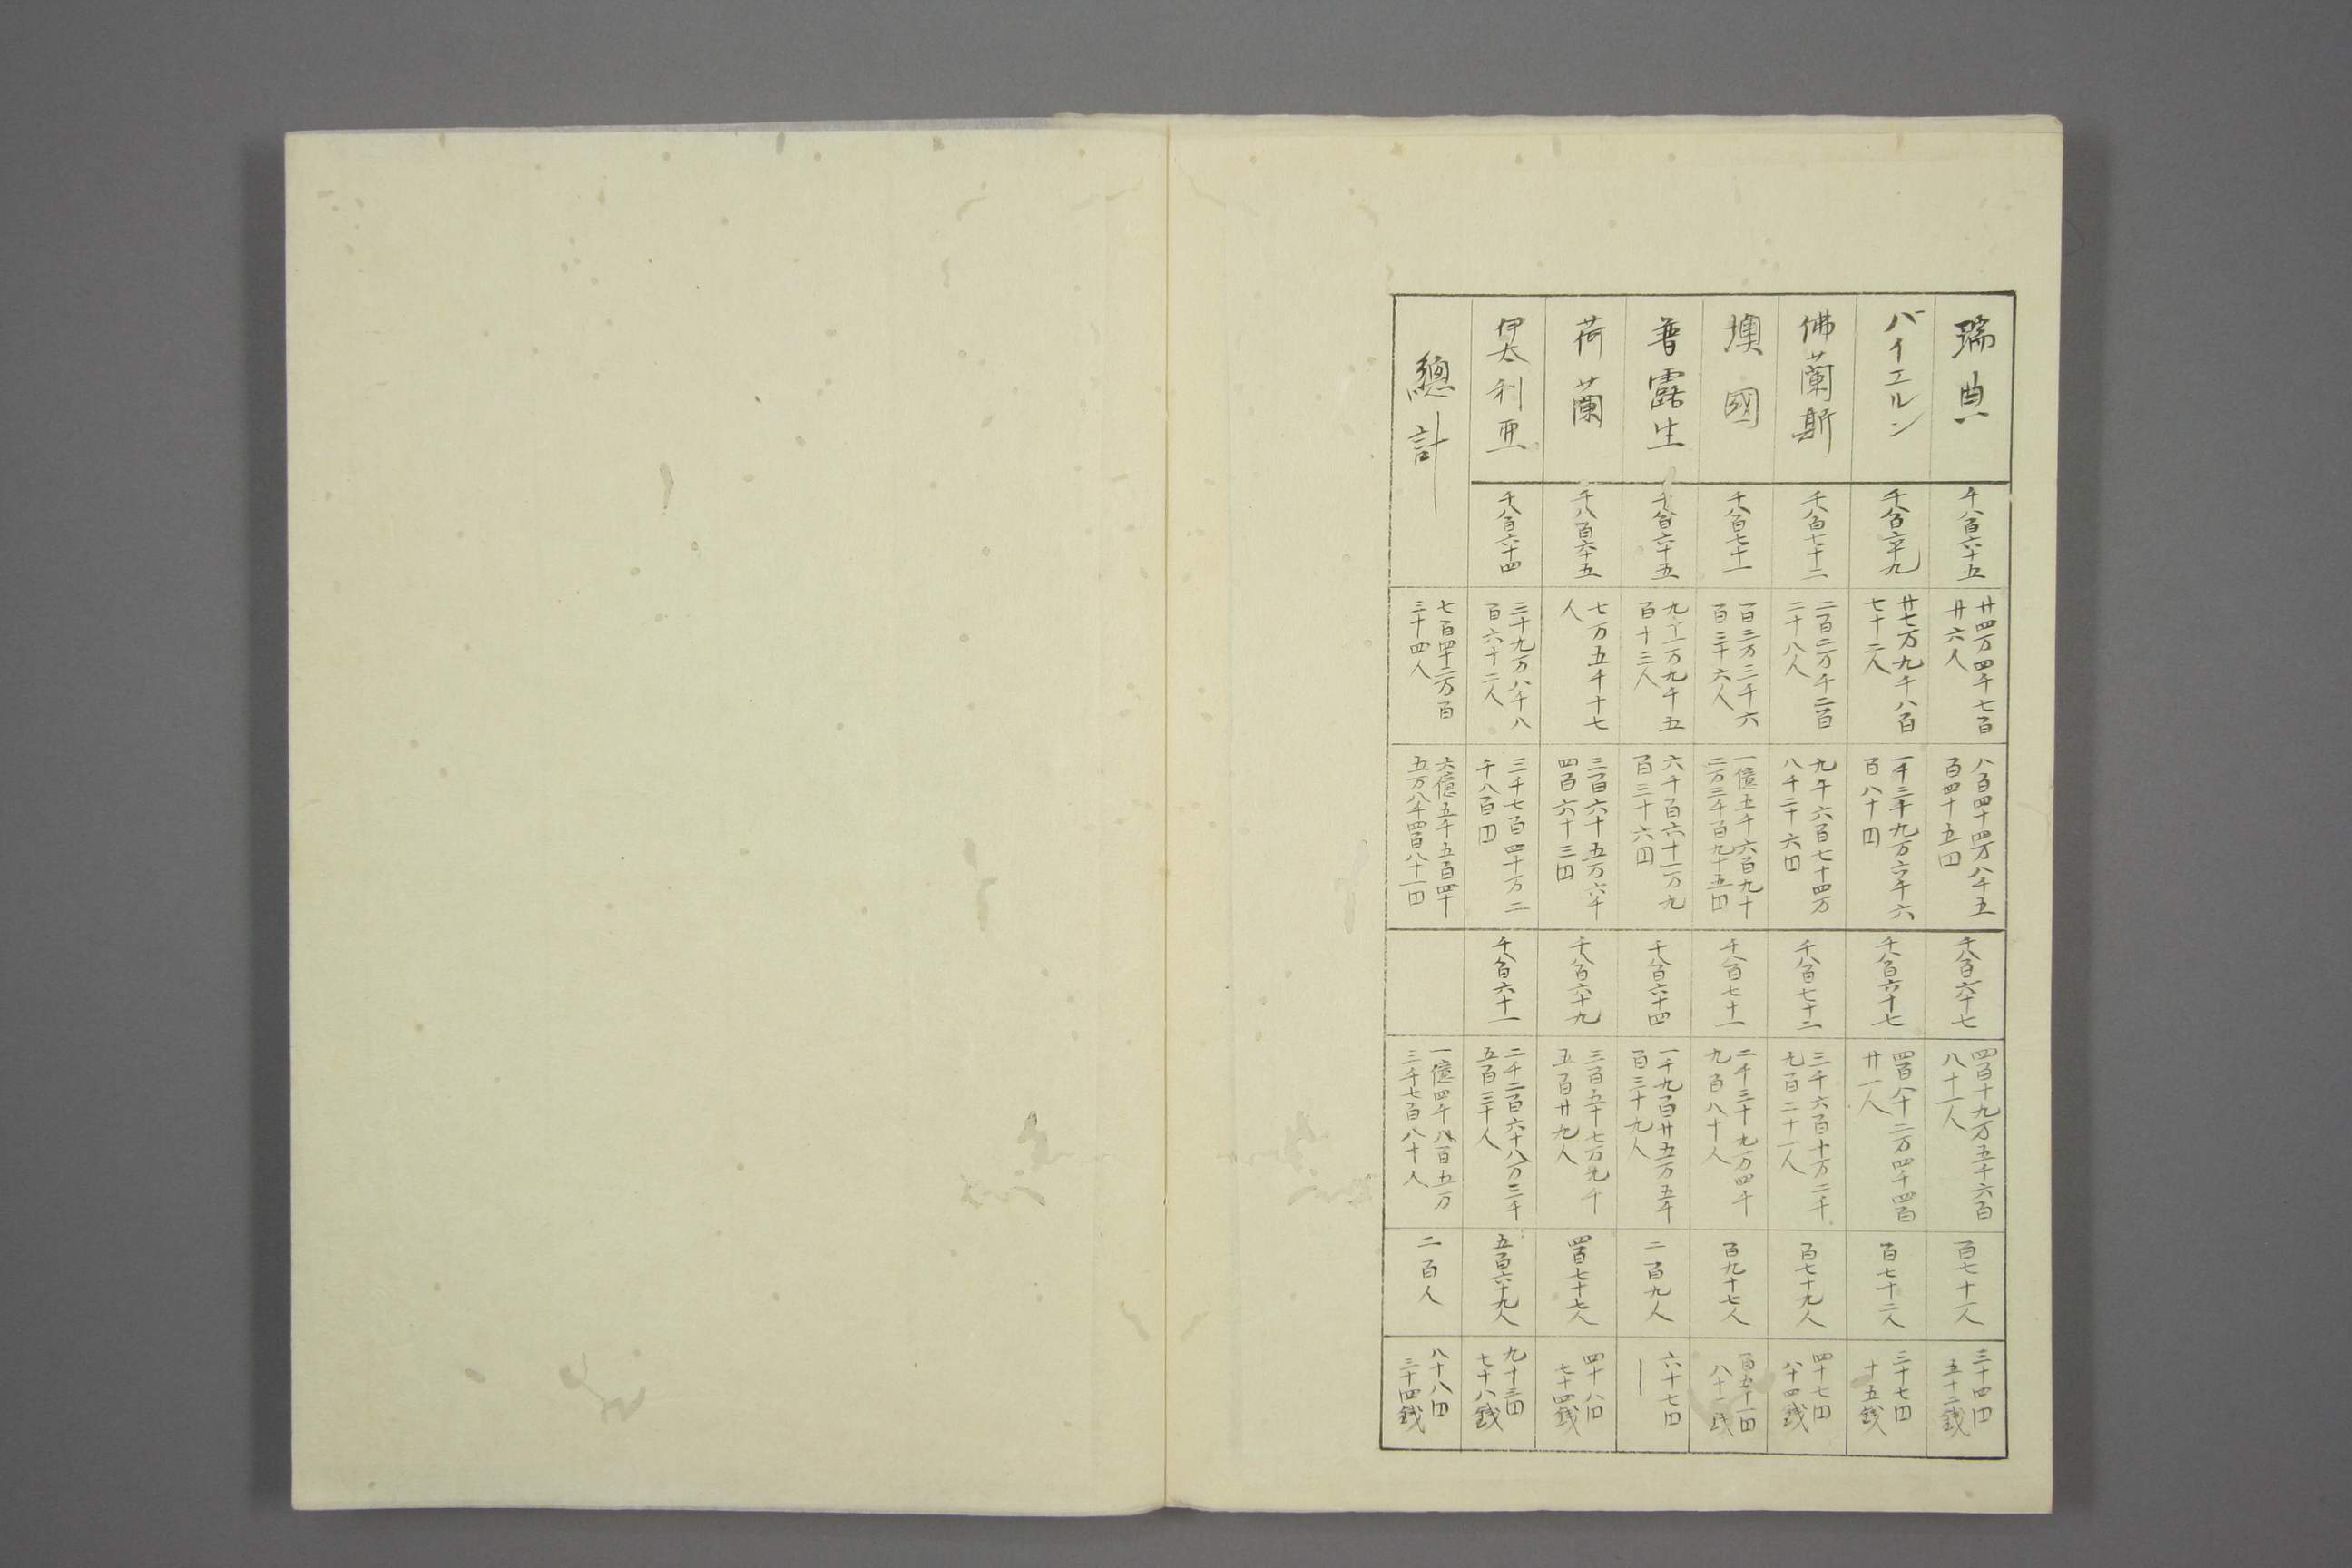 瑞典
千八百六十五
廿四万四千七百
廿六人
八百四十四万八千五
百四十五円
千八百六十七
四百十九万五千六百
八十一人
百七十一人
三十四円
五十二銭
バイエルン
千八百六十九
廿七万九千八百
七十二人
一千三十九万六千六
百八十円
千八百六十七
四百八十二万四千四百
廿一人
百七十二人
三十七円
十五銭
佛蘭斯
千八百七十二
二百二万千二百
二十八人
九千六百七十四万
八千二十六円
千八百七十二
三千六百十万二千
九百二十一人
百七十九人
四十七円
八十四銭
墺國
千八百七十一
百三万三千六
百三十六人
一億五千六百九十
二万三千百九十五円
千八百七十一
二千三十九万四千
九百八十人
百九十七人
百五十一円
八十一銭
普露生
千八百六十五
九十一万九千五
百十三人
六千百六十一万九
百三十六円
千八百六十四
一千九百廿五万五千
百三十九人
二百九人
六十七円
荷蘭
千八百六十五
七万五千十七
人
三百六十五万六千
四百六十三円
千八百六十九
三百五十七万九千
五百廿九人
四百七十七人
四十八円
七十四銭
伊太利亜
千八百六十四
三十九万八千八
百六十二人
三千七百四十万二
千八百円
千八百六十一
二千二百六十八万三千
五百三十人
五百六十九人
九十三円
七十八銭
總計
七百四十二万百
三十四人
六億五千五百四十
五万八千四百八十一円
一億四千八百五万
三千七百八十人
二百人
八十八円
三十四銭